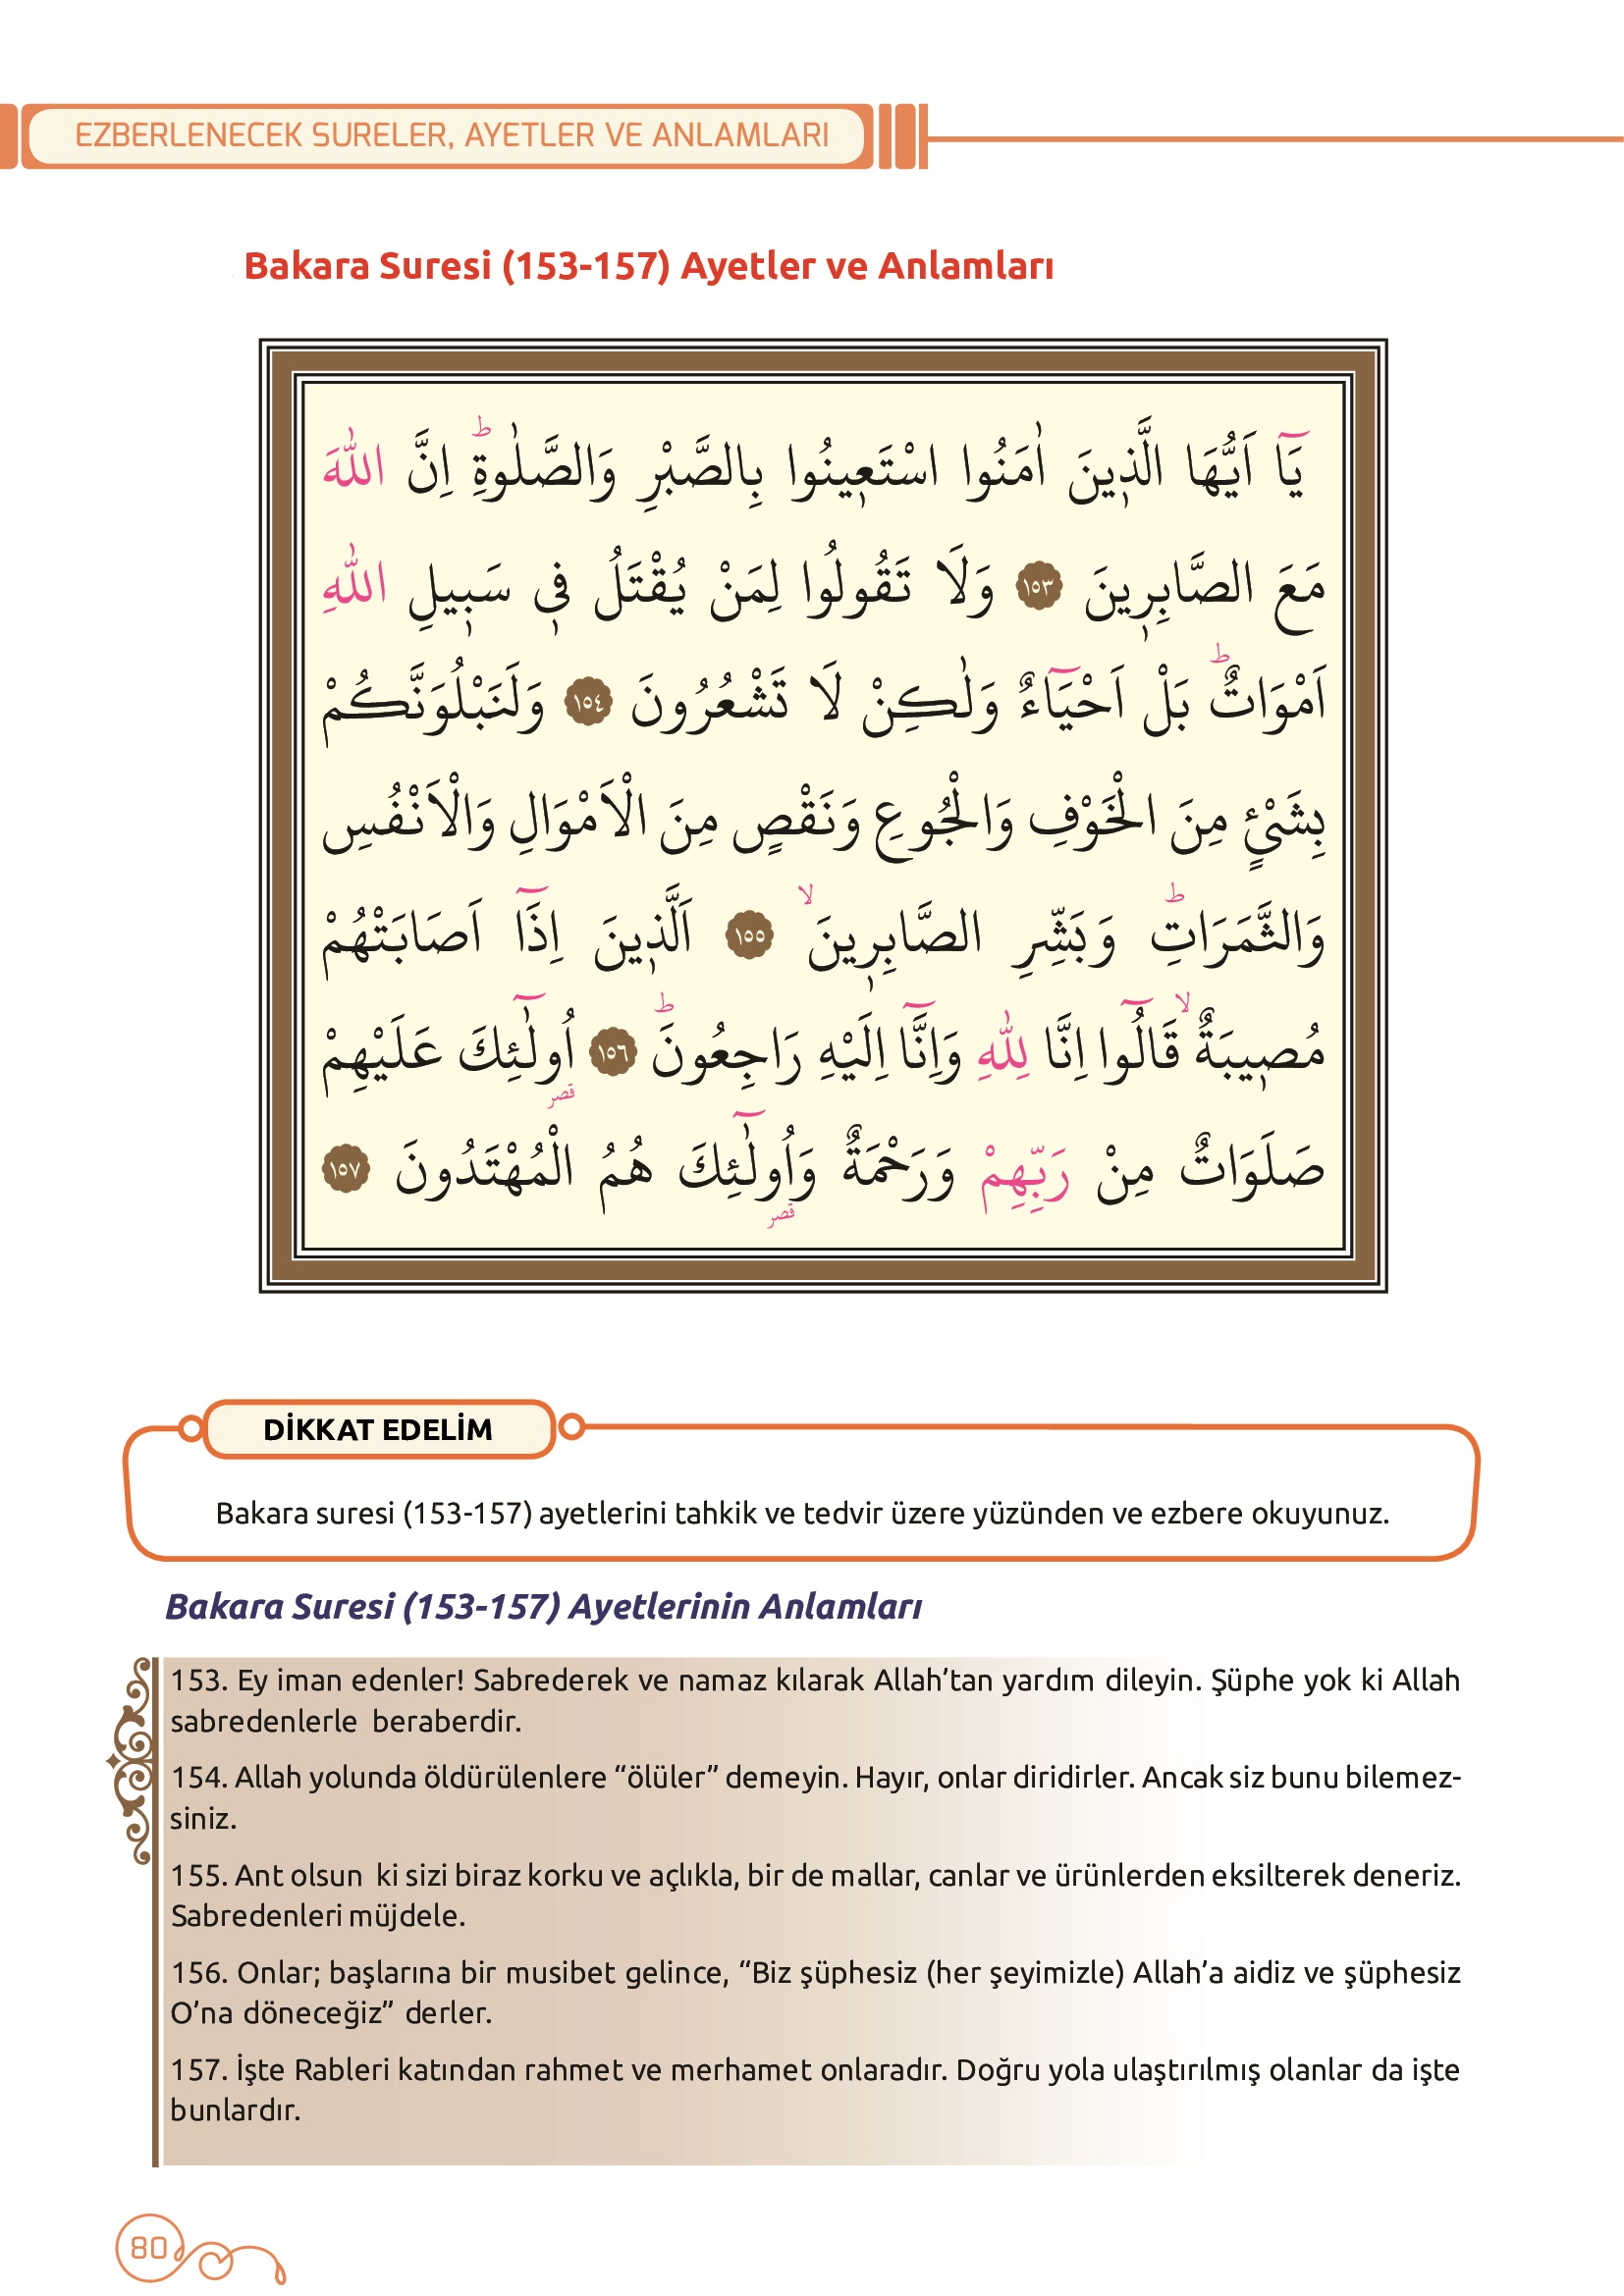 EZBERLENECEK SURELER, AYETLER VE ANLAMLARI
Bakara Suresi (153-157) Ayetler ve Anlamları
يَٓا اَيُّهَا الَّذ۪ينَ اٰمَنُوا اسْتَع۪ينُوا بِالصَّبْرِ وَالصَّلٰوةِۜ اِنَّ اللّٰهَ
مَعَ الصَّابِر۪ينَ ﴿١٥٣﴾ وَلَا تَقُولُوا لِمَنْ يُقْتَلُ ف۪ي سَب۪يلِ اللّٰهِ
اَمْوَاتٌۜ بَلْ اَحْيَٓاءٌ وَلٰكِنْ لَا تَشْعُرُونَ ﴿١٥٤﴾ وَلَنَبْلُوَنَّكُمْ
بِشَيْءٍ مِنَ الْخَوْفِ وَالْجُوعِ وَنَقْصٍ مِنَ الْاَمْوَالِ وَالْاَنْفُسِ
وَالثَّمَرَاتِۜ وَبَشِّرِ الصَّابِر۪ينَۙ ﴿١٥٥﴾ اَلَّذ۪ينَ اِذَٓا اَصَابَتْهُمْ
مُص۪يبَةٌۙ قَالُٓوا اِنَّا لِلّٰهِ وَاِنَّٓا اِلَيْهِ رَاجِعُونَۜ ﴿١٥٦﴾ اُو۬لٰٓئِكَ عَلَيْهِمْ
قصر
صَلَوَاتٌ مِنْ رَبِّهِمْ وَرَحْمَةٌ وَاُو۬لٰٓئِكَ هُمُ الْمُهْتَدُونَ ﴿١٥٧﴾
قصر
DİKKAT EDELİM
Bakara suresi (153-157) ayetlerini tahkik ve tedvir üzere yüzünden ve ezbere okuyunuz.
Bakara Suresi (153-157) Ayetlerinin Anlamları
153. Ey iman edenler! Sabrederek ve namaz kılarak Allah’tan yardım dileyin. Şüphe yok ki Allah
sabredenlerle beraberdir.
154. Allah yolunda öldürülenlere “ölüler” demeyin. Hayır, onlar diridirler. Ancak siz bunu bilemez-
siniz.
155. Ant olsun ki sizi biraz korku ve açlıkla, bir de mallar, canlar ve ürünlerden eksilterek deneriz.
Sabredenleri müjdele.
156. Onlar; başlarına bir musibet gelince, “Biz şüphesiz (her şeyimizle) Allah’a aidiz ve şüphesiz
O’na döneceğiz” derler.
157. İşte Rableri katından rahmet ve merhamet onlaradır. Doğru yola ulaştırılmış olanlar da işte
bunlardır.
80